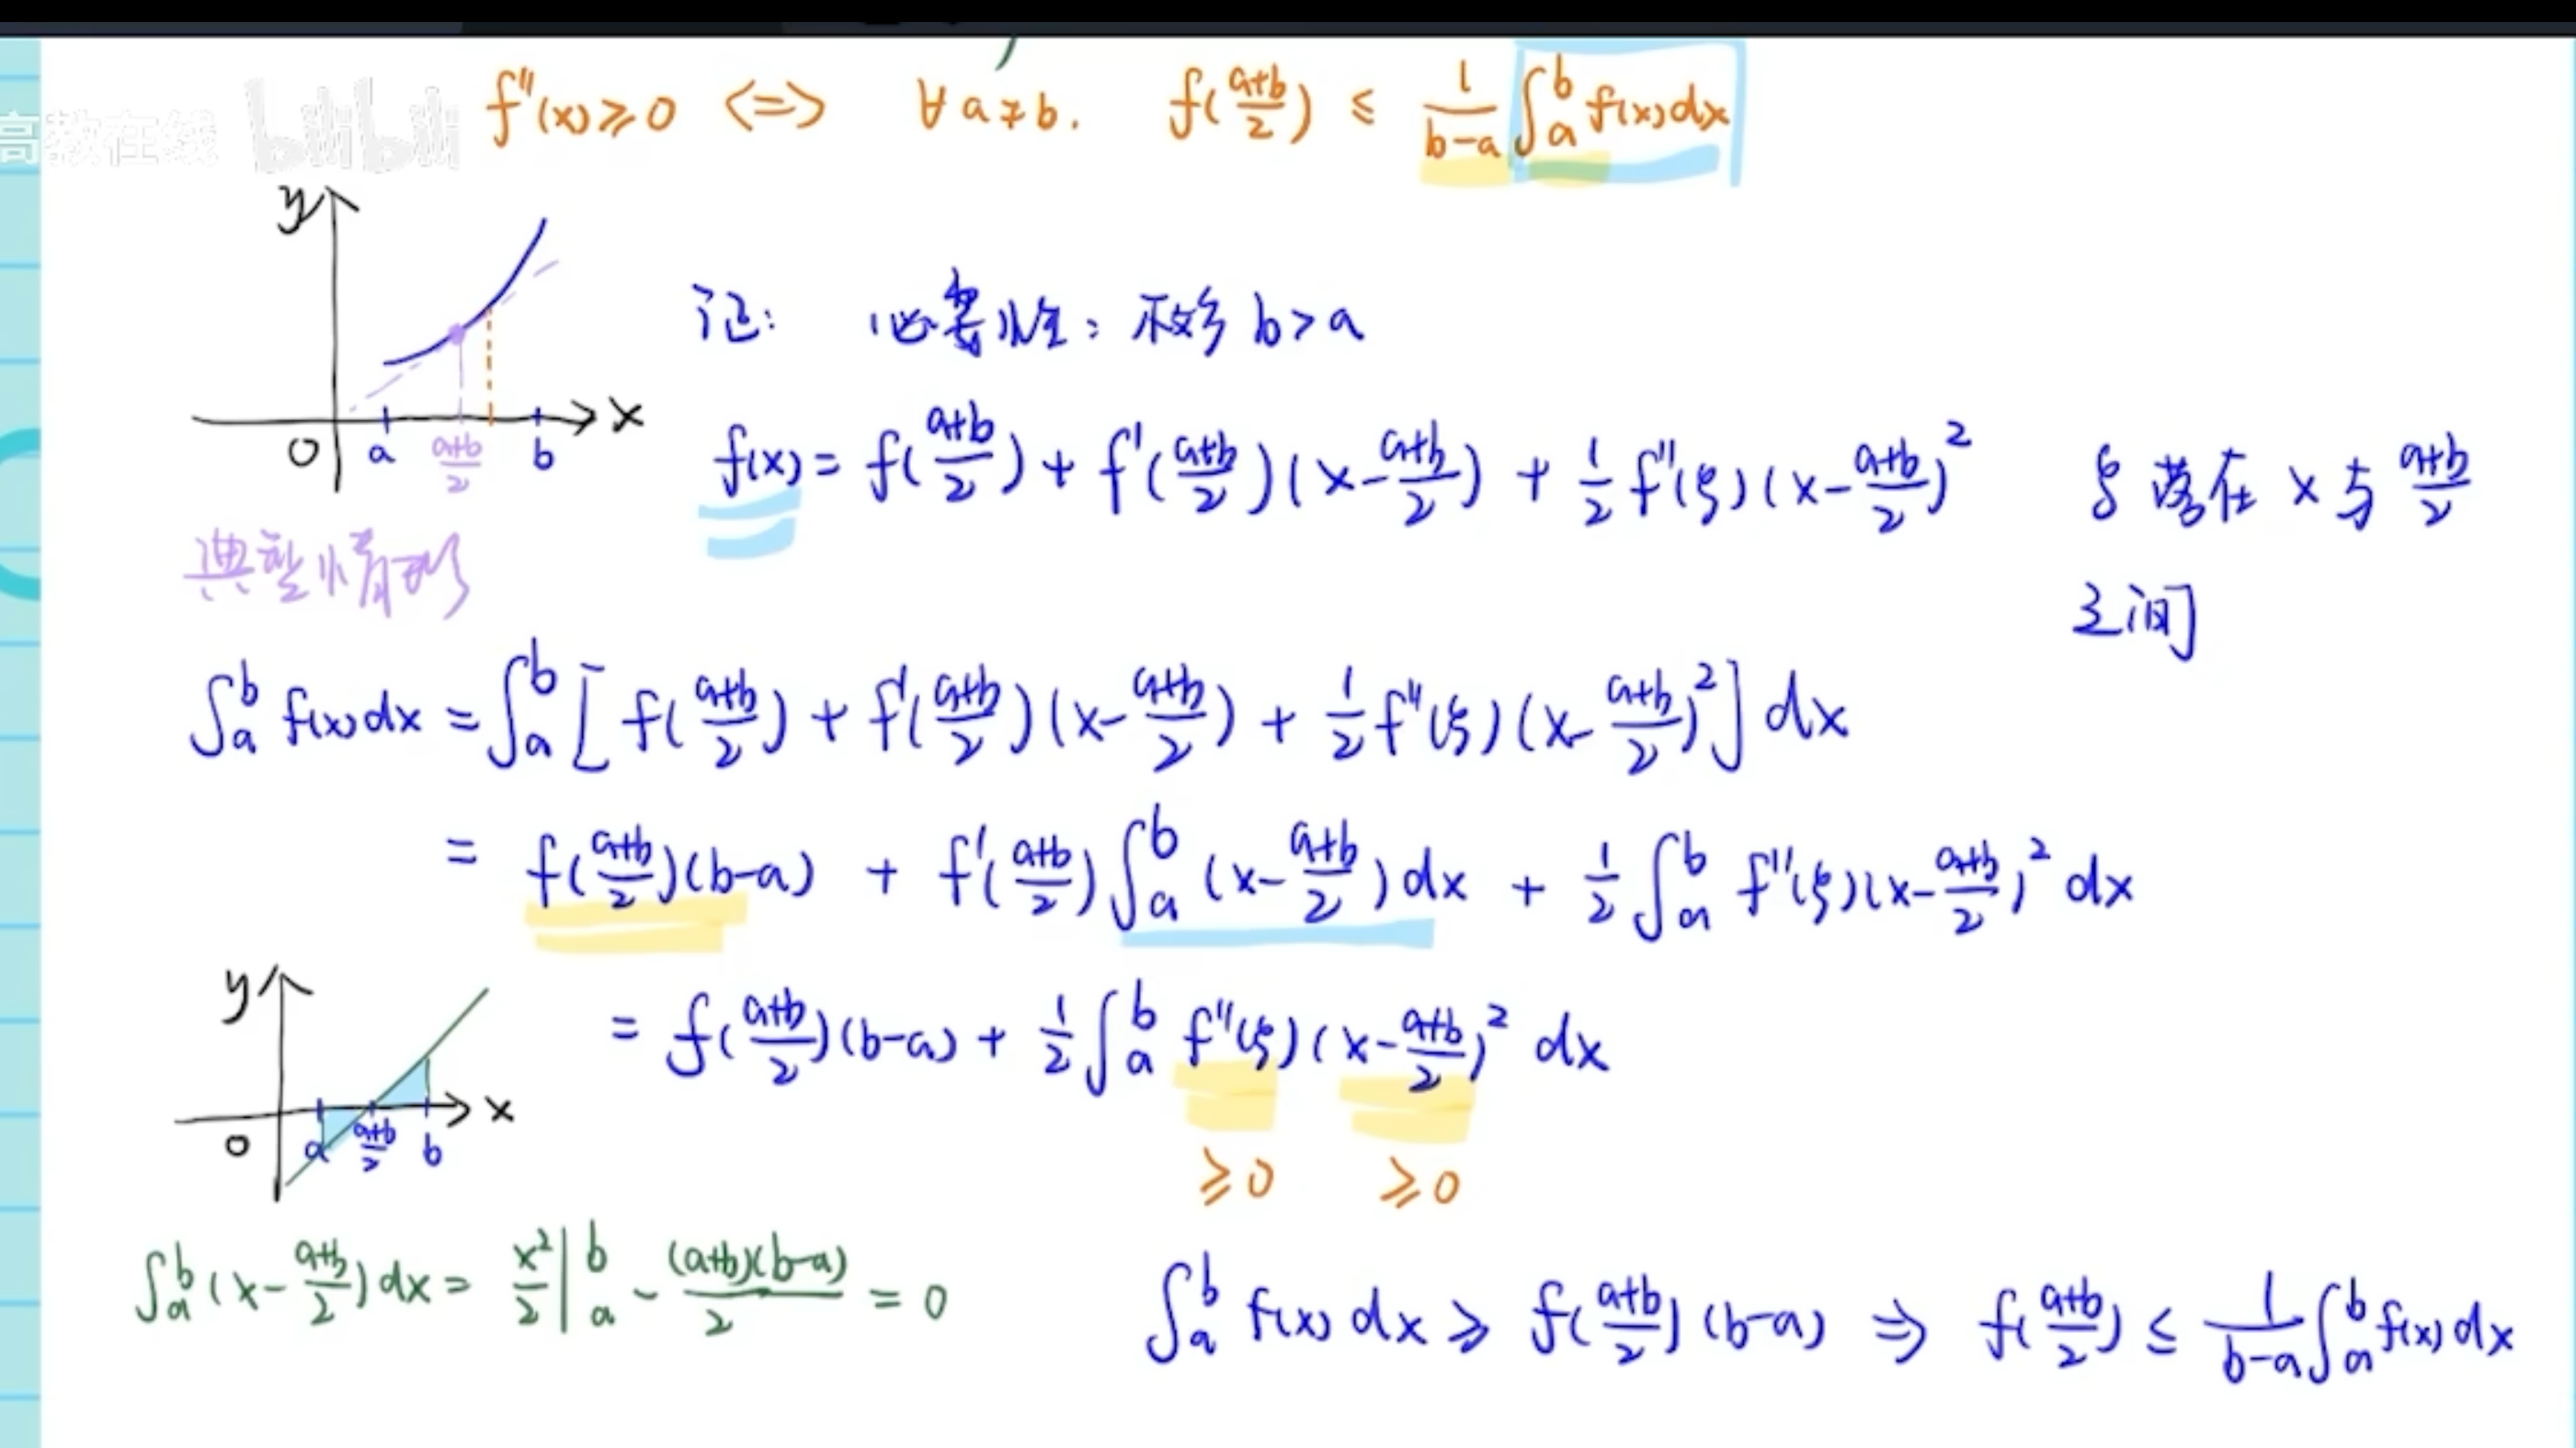 f''(x)≥0 <=> ∀a≠b. f(\frac{a+b}{2}) ≤ \frac{1}{b-a}∫_a^b f(x)dx
高教在线 bilibili
y
x
O a \frac{a+b}{2} b
典型情形
记: 必要性: 不妨 b>a
f(x) = f(\frac{a+b}{2}) + f'(\frac{a+b}{2})(x-\frac{a+b}{2}) + \frac{1}{2}f''(ξ)(x-\frac{a+b}{2})^2 ξ落在 x与\frac{a+b}{2}
之间
∫_a^b f(x)dx = ∫_a^b [f(\frac{a+b}{2}) + f'(\frac{a+b}{2})(x-\frac{a+b}{2}) + \frac{1}{2}f''(ξ)(x-\frac{a+b}{2})^2]dx
= f(\frac{a+b}{2})(b-a) + f'(\frac{a+b}{2})∫_a^b (x-\frac{a+b}{2})dx + \frac{1}{2}∫_a^b f''(ξ)(x-\frac{a+b}{2})^2 dx
= f(\frac{a+b}{2})(b-a) + \frac{1}{2}∫_a^b f''(ξ)(x-\frac{a+b}{2})^2 dx
≥0 ≥0
y
x
O a \frac{a+b}{2} b
∫_a^b (x-\frac{a+b}{2})dx = \frac{x^2}{2}|_a^b - \frac{(a+b)(b-a)}{2} = 0
∫_a^b f(x)dx ≥ f(\frac{a+b}{2})(b-a) ⇒ f(\frac{a+b}{2}) ≤ \frac{1}{b-a}∫_a^b f(x)dx